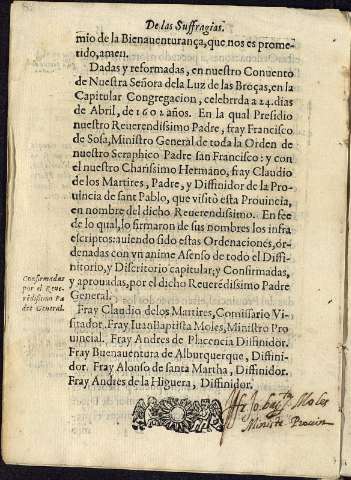 De las Suffragias.
mio de la Bienauenturança, que nos es prome-
tido, amen.
Dadas y reformadas, en nuestro Conuento
de Nuestra Señora dela Luz de las Broças, en la
Capitular Congregacion, celebrrda a 24. dias
de Abril, de 1602 años. En la qual Presidio
nuestro Reuerendissimo Padre, fray Francisco
de Sosa, Ministro General de toda la Orden de
nuestro Seraphico Padre san Francisco: y con
el nuestro Charissimo Hermano, fray Claudio
de los Martires, Padre, y Diffinidor de la Pro-
uincia de sant Pablo, que visitò esta Prouincia,
en nombre del dicho Reuerendissimo. En fee
de lo qual, lo firmaron de sus nombres los infra
escriptos: auiendo sido estas Ordenaciones, or-
denadas con vn anime Asenso de todo el Diffi-
nitorio, y Discritorio capitular; y Confirmadas,
y aprouadas, por el dicho Reuerēdissimo Padre
General.
Confirmadas
por el Reue-
rēdissimo Pa
dre General.
Fray Claudio de los Martires, Comissario Vi-
sitador. Fray Iuan Baptista Moles, Ministro Pro
uincial. Fray Andres de Placencia Diffinidor.
Fray Buenauentura de Alburquerque, Diffini-
dor. Fray Alonso de santa Martha, Diffinidor.
Fray Andres de la Higuera, Diffinidor.
fr Jo. bap.ta Moles
Ministº Prouin